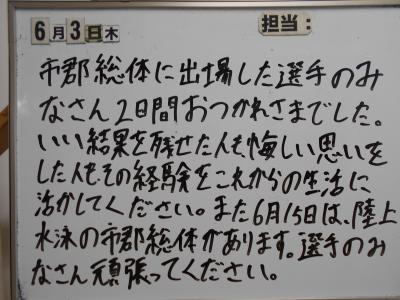 6月3日木 担当:
市郡総体に出場した選手のみ
なさん2日間おつかれさまでした。
いい結果を残せた人も悔しい思いを
した人もその経験をこれからの生活に
活かしてください。また6月15日は、陸上
水泳の市郡総体があります。選手のみ
なさん頑張ってください。